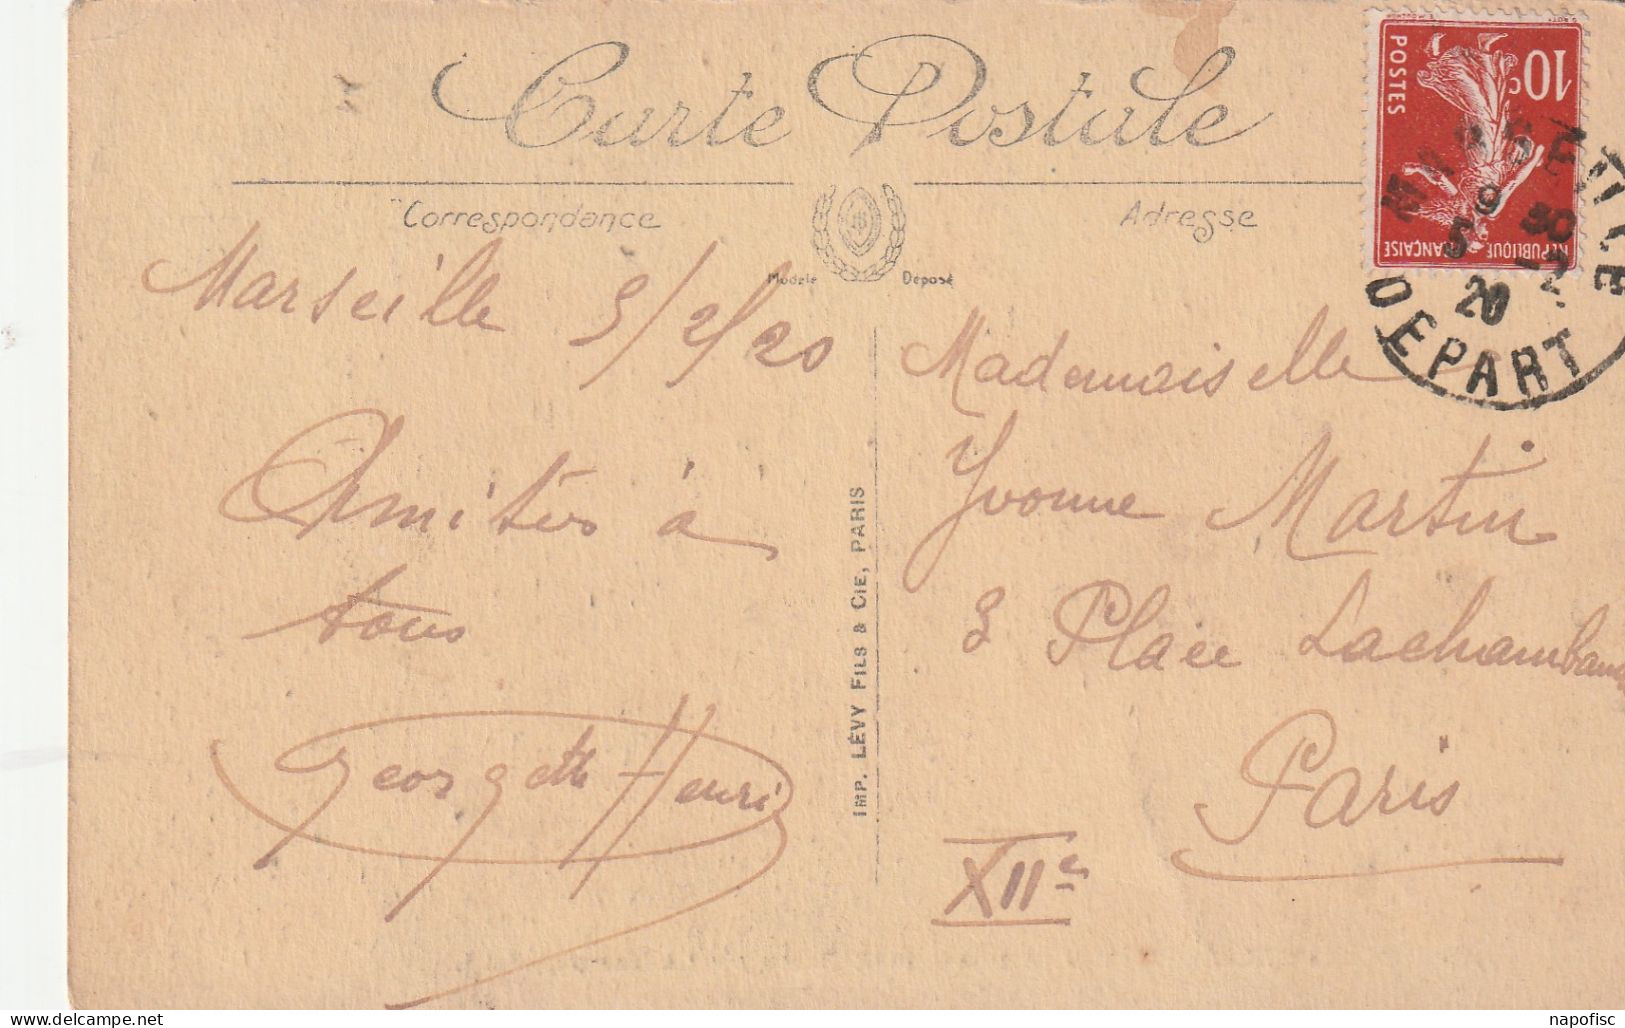 Carte Postale
Correspondance
Adresse
Modèle Déposé
10c
POSTES
RÉPUBLIQUE FRANÇAISE
MARSEILLE
9 30
5 - 2
20
DEPART
Marseille 5/2/20
Amitiés à
tous
Georgette Henri
IMP. LÉVY FILS & CIE, PARIS
Mademoiselle
Yvonne Martin
3 Place Lachambaudie
Paris
XIIe
napofisc
delcampe.net